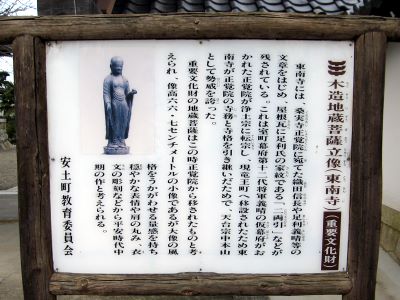 木造地蔵菩薩立像 東南寺(重要文化財)
東南寺には、桑実寺正覚院に宛てた織田信長や足利義晴等の
文章をはじめ、屋根瓦に足利氏の家紋である「二両引」などが
残されている。これは室町幕府第十二代将軍義晴の仮幕府がお
かれた正覚院が浄土宗に転宗し、現竜王町へ移設されたため東
南寺が正覚院の寺務と寺格を引き継いだためで、天台宗中本山
として勢威を誇った。
重要文化財の地蔵菩薩はこの時正覚院から移されたものと考
えられ、像高六六・七センチメートルの小像であるが大像の風
格をうかがわせる量感を持ち
穏やかな表情や肩の丸み、衣
文の彫刻などから平安時代中
期の作と考えられる。
安土町教育委員会